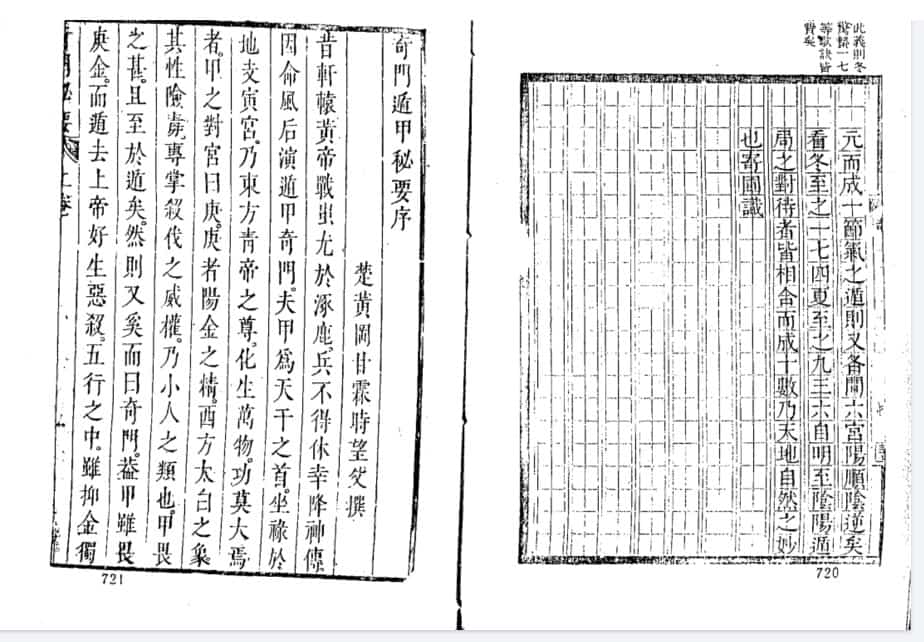 此義則冬
驚蟄一七
等歌訣皆
費矣
元而成十節氣之遁則又各間六宮陽順陰逆矣
看冬至之一七四夏至之九三六自明至陰陽遁
局之對待者皆相合而成十數乃天地自然之妙
也寄圖識
720
奇門遁甲秘要序
楚黃岡甘霖時望父撰
昔軒轅黃帝戰蚩尤於涿鹿。兵不得休幸降神傳
因命風后演遁甲奇門。夫甲爲天干之首。坐祿於
地支寅宮。乃東方青帝之尊。化生萬物。功莫大焉
者。甲之對宮曰庚。庚者陽金之精。西方太白之象
其性險毒。專掌殺伐之威權。乃小人之類也。甲畏
之甚。且至於遁矣。然則又奚而曰奇門。葢甲雖畏
庚金。而遁去上帝好生惡殺。五行之中。雖抑金獨
門秘要
卷
721